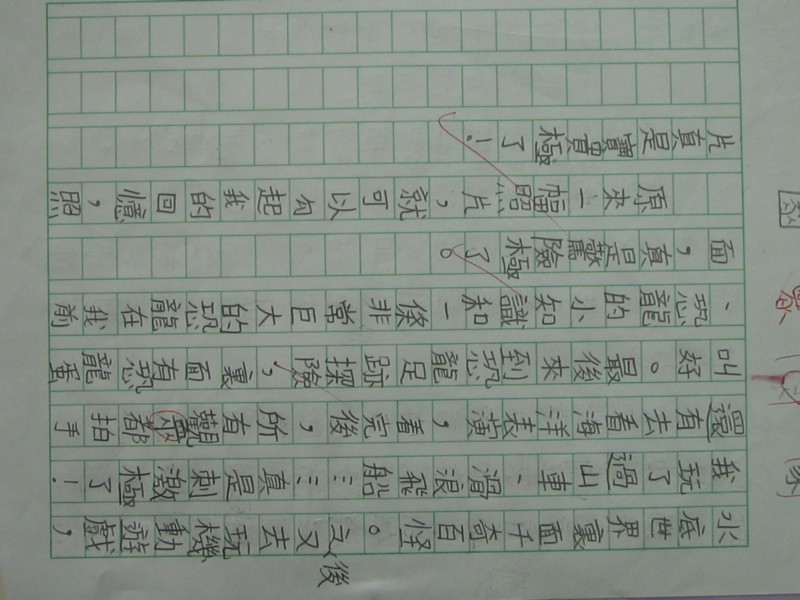 水底世界裏面千奇百怪。之後又去玩機動遊戲，
我玩了過山車、滑浪飛船……真是刺激極了！
還有去看海洋表演，看完後，所有觀眾都拍手
叫好。最後來到恐龍足跡探險，裏面有恐龍蛋
、恐龍的小知識和一條非常巨大的恐龍在我前
面，真是驚險極了。
原來一幅照片，就可以勾起我的回憶，照
片真是寶貴極了！